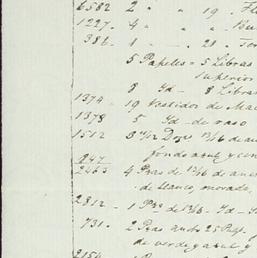 6582 2 " " 19 "
1227 - 4 " "
386 - 1 - - . 21 "
5 Papeles = 5 Libras
superior
8 Id - 8 Libras
1374 - 19 Vestidos de
1378 5 Id - de raso
1512 8 7/12 Dozs 13/16 de
fondo azul y
247
2463 4 Pzas de 13/16 de
de blanco, morado,
2812 - 1 Pza de 13/16 - Id -
731 - 2 Pzas 25
de verde y azul y
2154